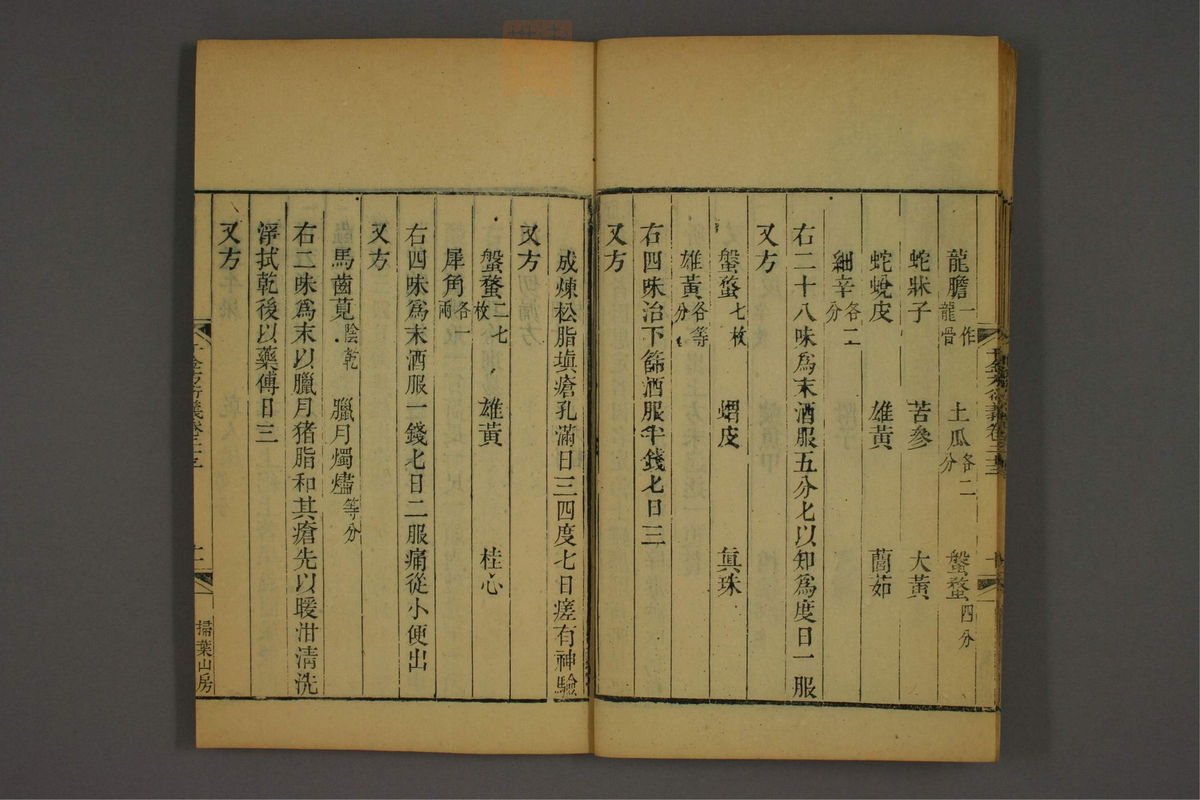 龍膽一作龍骨 土瓜各二分 螌蝥四分
蛇牀子 苦參 大黃
蛇蛻皮 雄黃 䕡茹
細辛各二分
右二十八味爲末酒服五分匕以知爲度日一服
又方
螌蝥七枚 蝟皮 眞珠
雄黃各等分
右四味治下篩酒服半錢匕日三
又方
成煉松脂塡瘡孔滿日三四度七日瘥有神驗
又方
螌蝥二七枚 雄黃 桂心
犀角各一兩
右四味爲末酒服一錢匕日二服痛從小便出
又方
馬齒莧陰乾 臘月燭燼等分
右二味爲末以臘月猪脂和其瘡先以暖泔清洗
淨拭乾後以藥傅日三
又方
掃葉山房